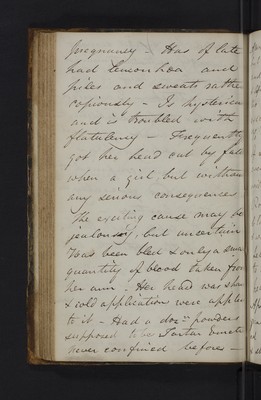 pregnancy — Has of late
had leucorrhœa and
piles and sweats rather
copiously — Is hysterical
and is troubled with
flatulency — Frequently
got her head cut by falls
when a girl but without
any serious consequences
The exciting cause may be
jealousy, but uncertain
Has been bled & only a small
quantity of blood taken from
her arm. Her head was
& cold application were applied
to it — Had a doz.ⁿ powders
supposed to be Tartar Emetic
never confined before —